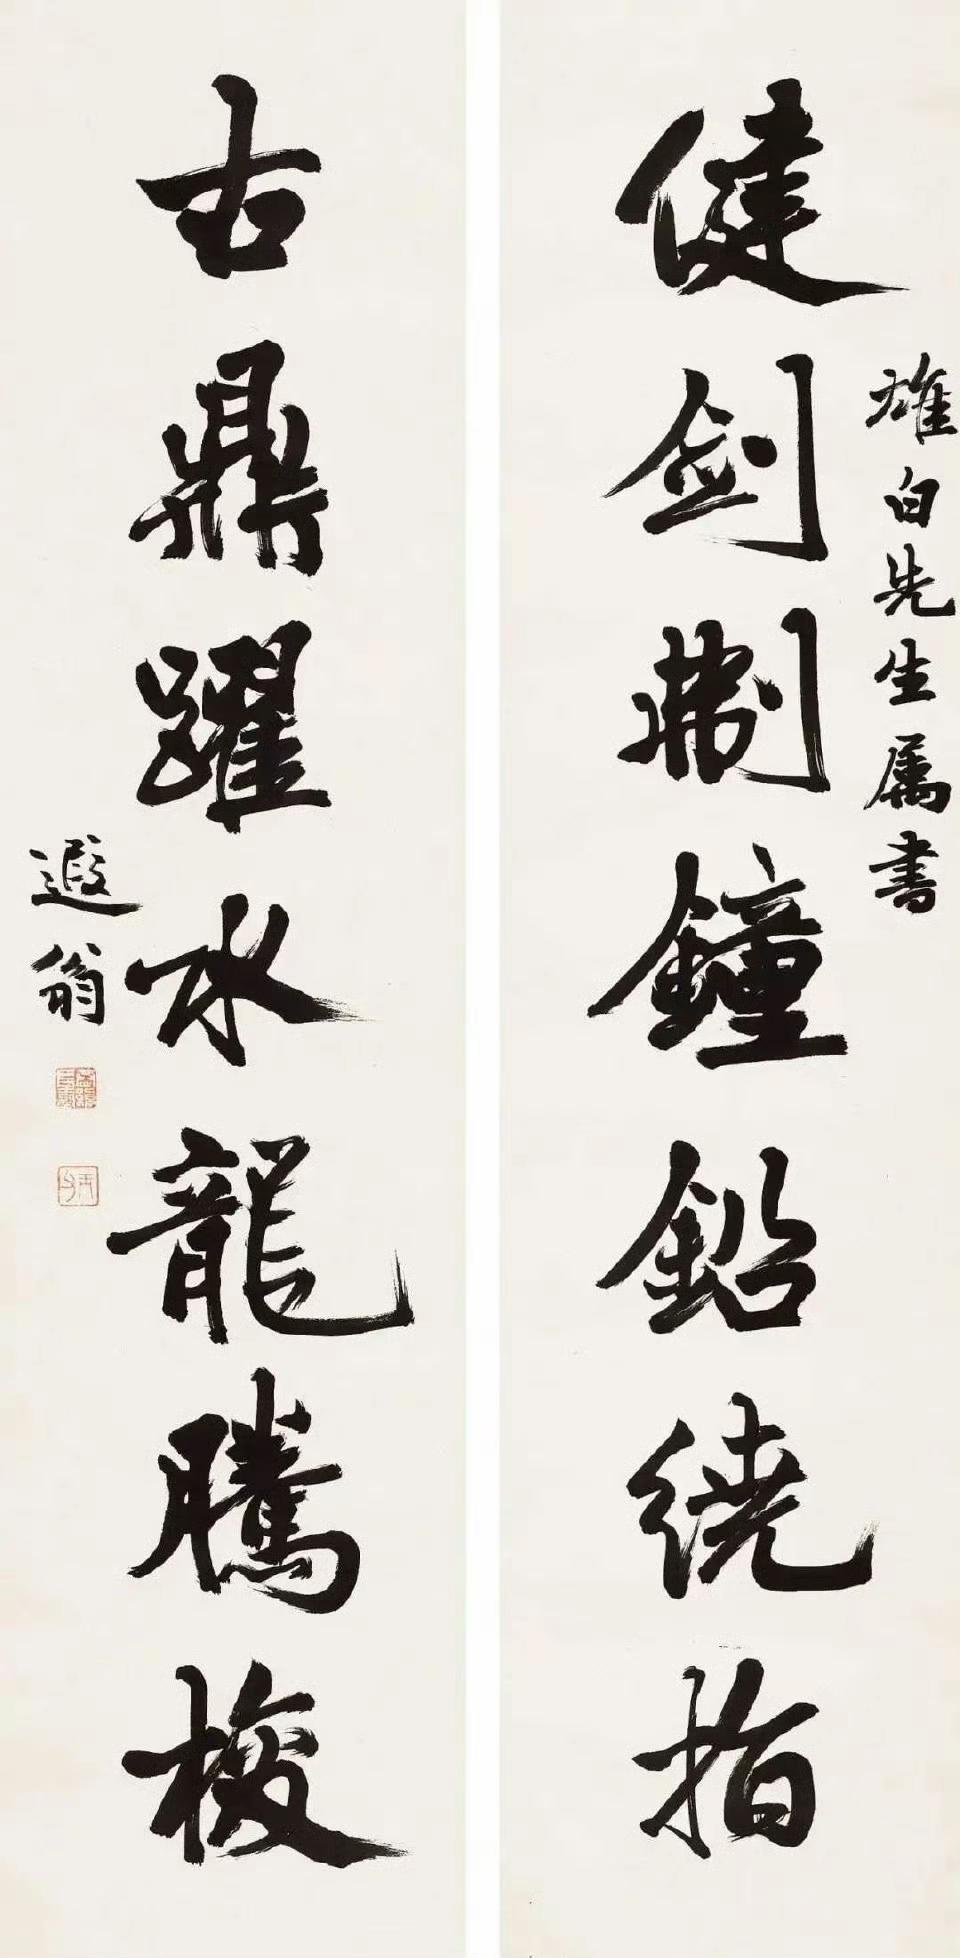 雄白先生属書
健剑刜鐘鉛繞指
古鼎躍水龍騰梭
遐翁